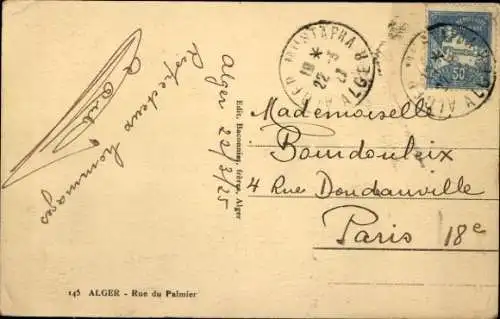 Alger 22/3/25
Respectueux hommages
Mademoiselle
Bourdouleix
4 Rue Doudeauville
Paris 18e
Edit. Baconnier, frères, Alger
145 ALGER - Rue du Palmier
ALGER MUSTAPHA
ALGER
19
22
50